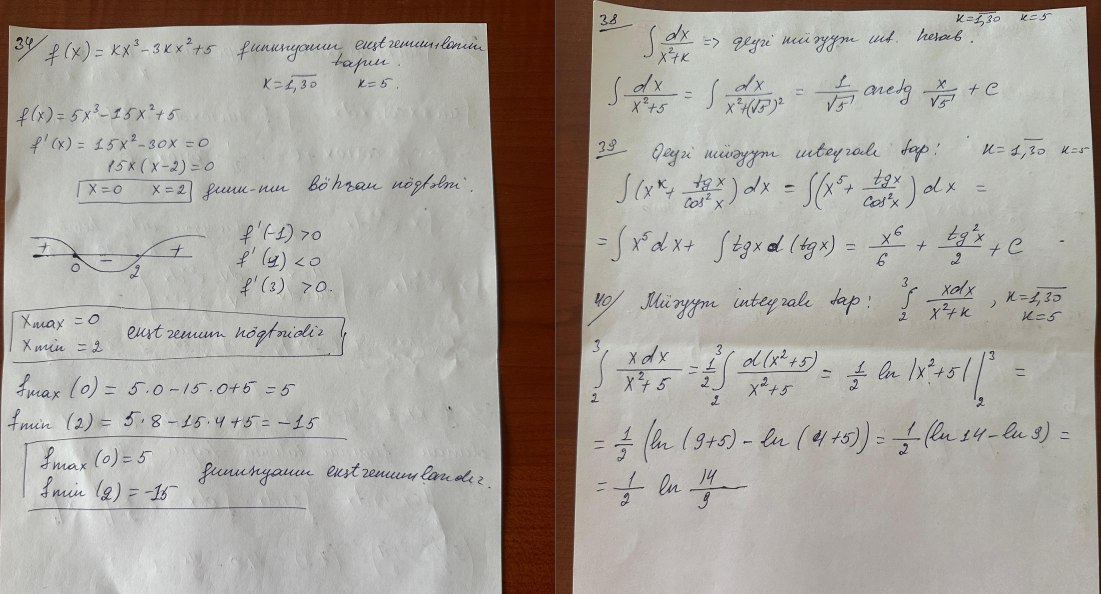 34/ f(x) = kx³ − 3kx² + 5 funksiyanın ekstremumlarını
tapın.
k = 1,30 k = 5.
f(x) = 5x³ − 15x² + 5
f'(x) = 15x² − 30x = 0
15x(x−2) = 0
x=0 x=2 funk-nın böhran nöqtələri.
+ − +
0 2
f'(-1) > 0
f'(1) < 0
f'(3) > 0.
x max = 0
x min = 2 ekstremum nöqtəsidir
f max (0) = 5·0 − 15·0 + 5 = 5
f min (2) = 5·8 − 15·4 + 5 = −15
f max (0) = 5
f min (2) = −15 funksiyanın ekstremumlarıdır.
k = 1,30 k = 5
38
∫ dx/(x²+k) => qeyri müəyyən int. hesab.
∫ dx/(x²+5) = ∫ dx/(x²+(√5)²) = 1/√5 arctg x/√5 + C
39 Qeyri müəyyən inteqralı tap: k = 1,30 k = 5
∫ (x^k + tgx/cos²x) dx = ∫ (x⁵ + tgx/cos²x) dx =
= ∫ x⁵ dx + ∫ tgx d(tgx) = x⁶/6 + tg²x/2 + C
40/ Müəyyən inteqralı tap: ∫₂³ xdx/(x²+k), k = 1,30
k = 5
∫₂³ xdx/(x²+5) = 1/2 ∫₂³ d(x²+5)/(x²+5) = 1/2 ln |x²+5| |₂³ =
= 1/2 (ln (9+5) − ln (4+5)) = 1/2 (ln 14 − ln 9) =
= 1/2 ln 14/9